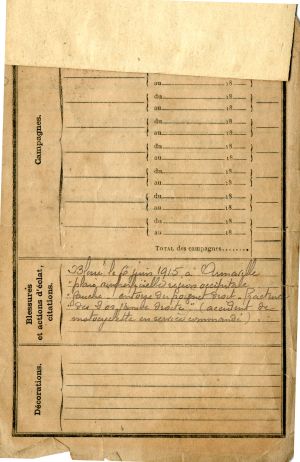 Campagnes.
du 18
au 18
du 18
au 18
du 18
au 18
du 18
au 18
du 18
au 18
du 18
au 18
du 18
au 18
TOTAL des campagnes
Blessures
et actions d'éclat,
citations.
Blessé le 6 juin 1915 à
plaie superficielle région occipitale
gauche, entorse du poignet droit, fracture
des 2 os jambe droite" (accident de
motocyclette en service commandé)
Décorations.